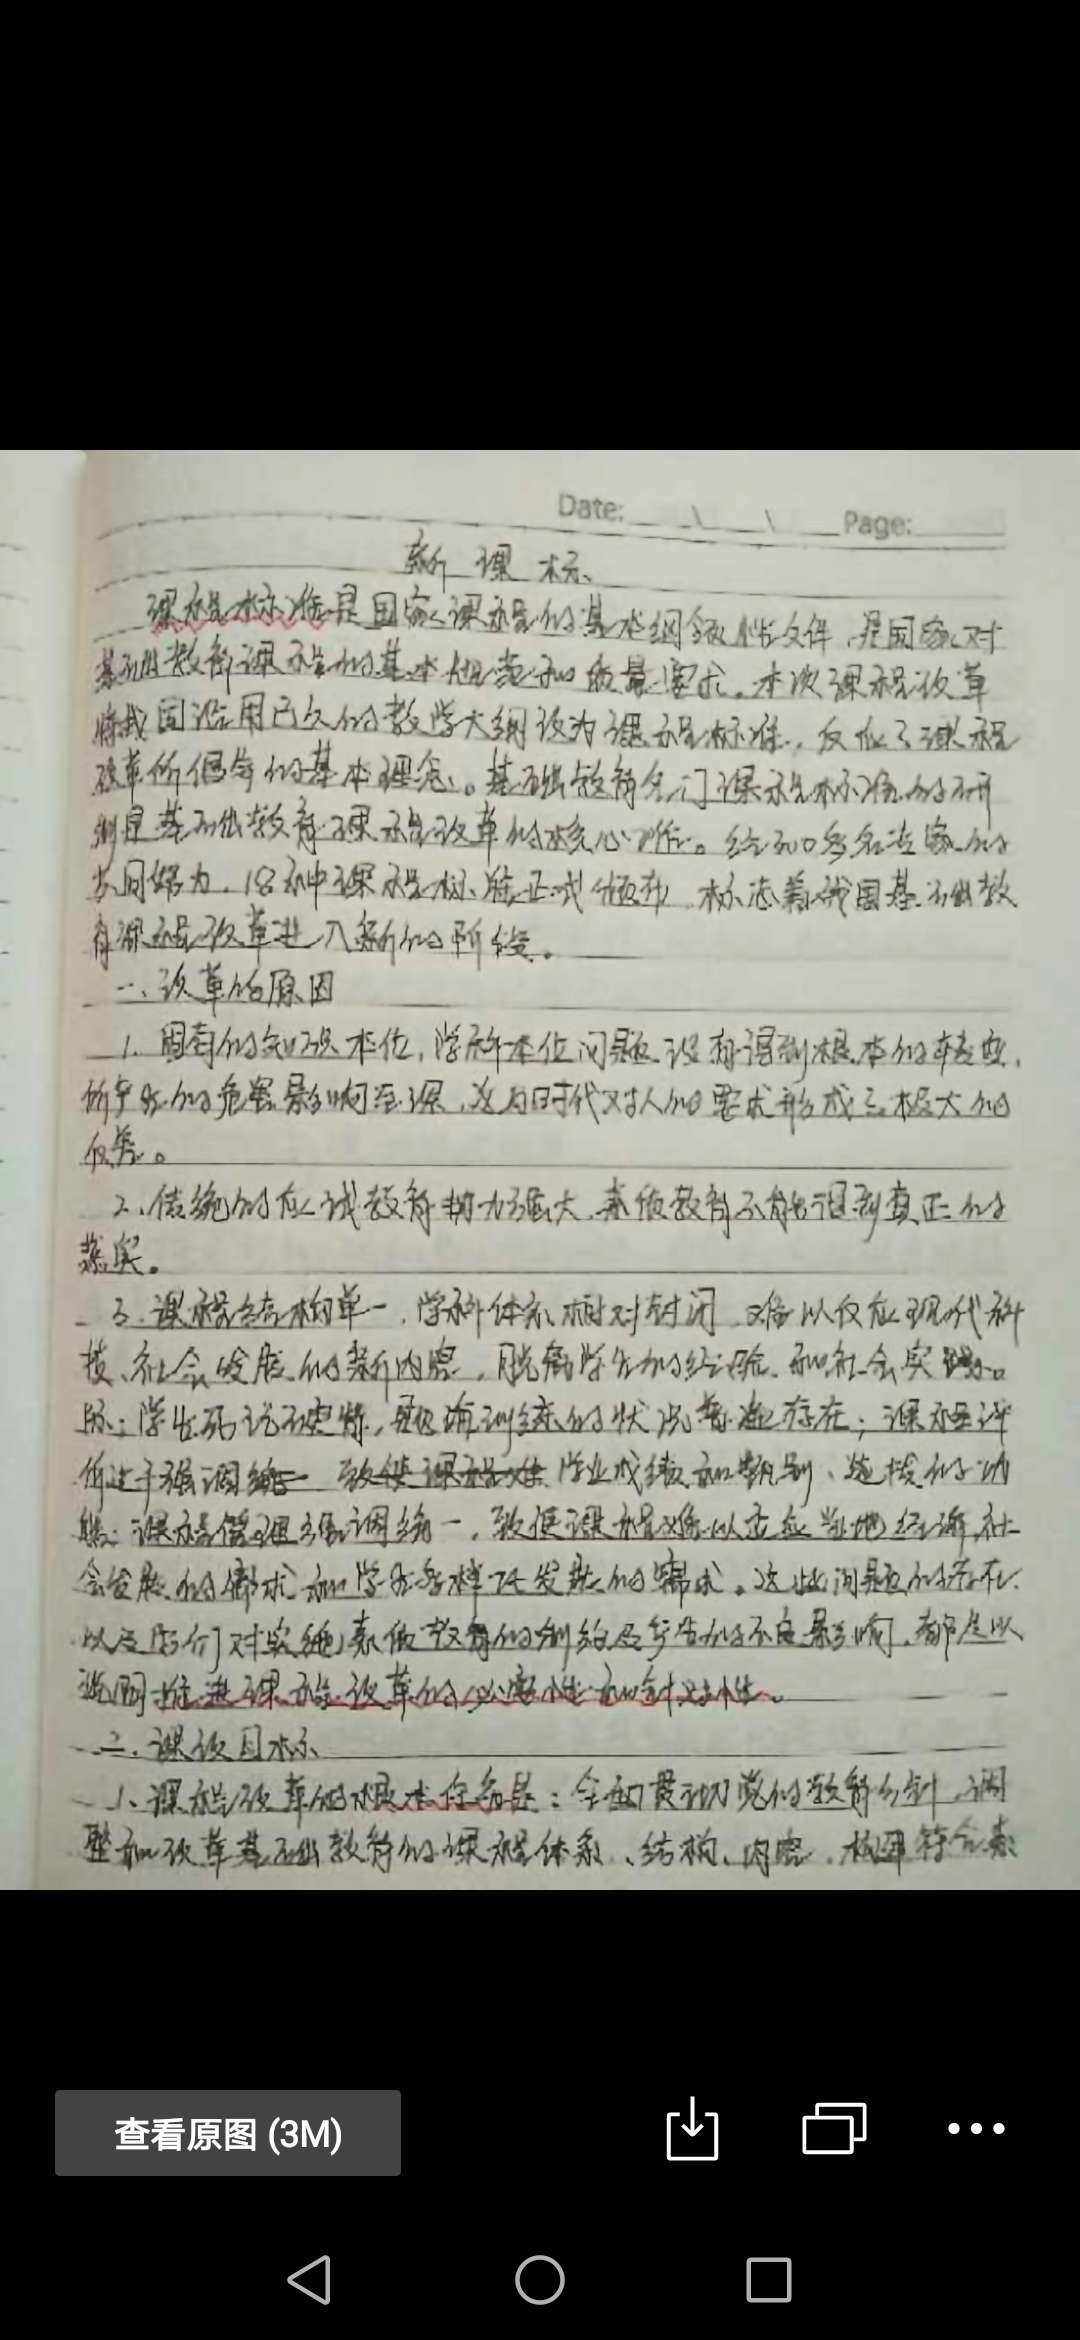 Date: \ \ Page:
新课标
课程标准是国家课程的基本纲领性文件,是国家对
基础教育课程的基本规范和质量要求。本次课程改革
将我国沿用已久的教学大纲改为课程标准,反应了课程
改革所倡导的基本理念。基础教育各门课程标准的研
制是基础教育课程改革的核心工作。经300多名专家的
共同努力,18种课程标准正式颁布,标志着我国基础教
育课程改革进入新的阶段。
一、改革的原因
1、固有的知识本位,学科本位问题没有得到根本的转变,
所产生的危害影响至深,这与时代对人的要求形成了极大的
反差。
2、传统的应试教育势力强大,素质教育不能得到真正的
落实。
3、课程结构单一,学科体系相对封闭,难以反应现代科
技、社会发展的新内容,脱离学生的经验和社会实践。
学生死记硬背,题海训练的状况普遍存在;课程评
价过于强调学业成绩和甄别、选拔的功
能;课程管理强调统一,致使课程难以适应当地经济、社
会发展的需求和学生多样化发展的需求。这些问题的存在
以及它们对实施素质教育的制约及产生的不良影响,都足以
说明推进课程改革的必要性和针对性。
二、课改目标
1、课程改革的根本任务是:全面贯彻党的教育方针,调
整和改革基础教育的课程体系、结构、内容,构建符合素
查看原图 (3M)